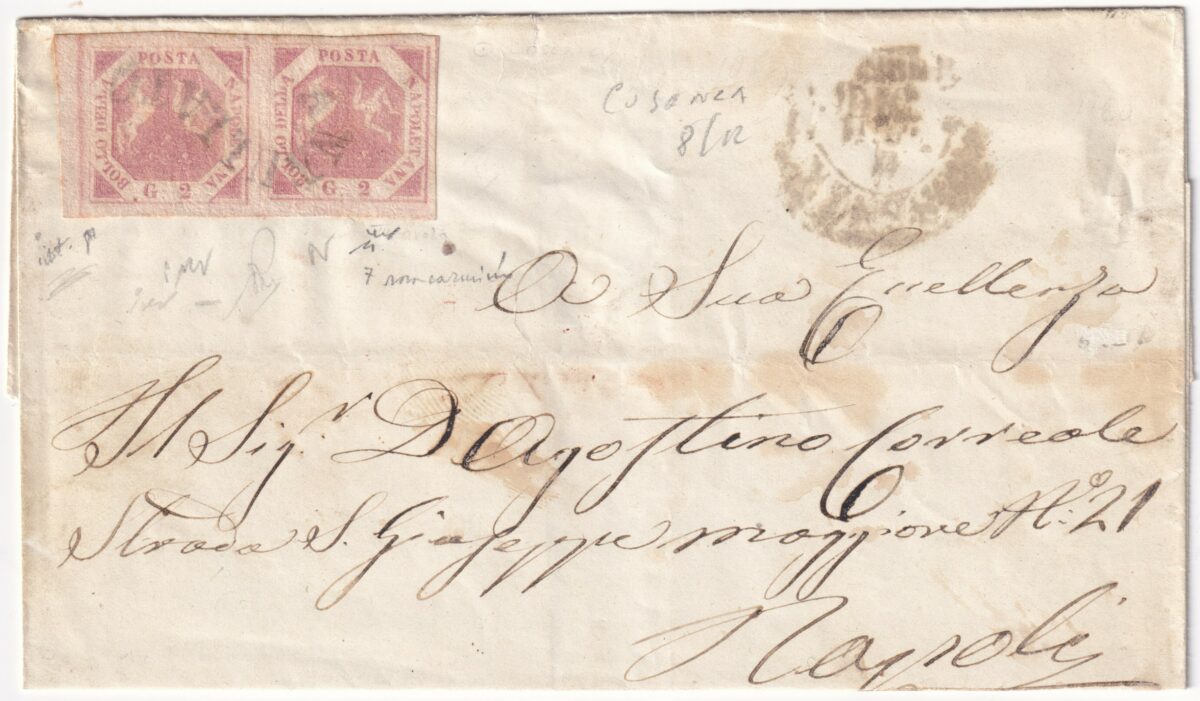 POSTA
BOLLO DELLA
NAPOLETANA
G. 2
POSTA
BOLLO DELLA
NAPOLETANA
G. 2
COSENZA
8/12
A Sua Eccellenza
Il Sig.r D Agostino Correale
Strada S. Giuseppe maggiore N.o 21
Napoli